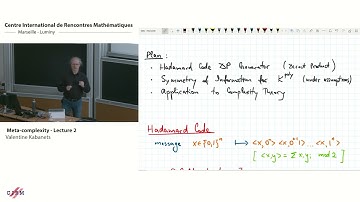 Centre International de Rencontres Mathématiques
Marseille - Luminy
Meta-complexity - Lecture 2
Valentine Kabanets
CIRM
Plan:
• Hadamard Code DP Generator (Direct Product)
• Symmetry of Information for K^poly (under assumptions)
• Application to Complexity Theory
Hadamard Code
message x∈{0,1}^n ⟼ <x,0^n> <x,0^{n-1}1> ... <x,1^n>
[ <x,y> = Σ x_i y_i mod 2 ]